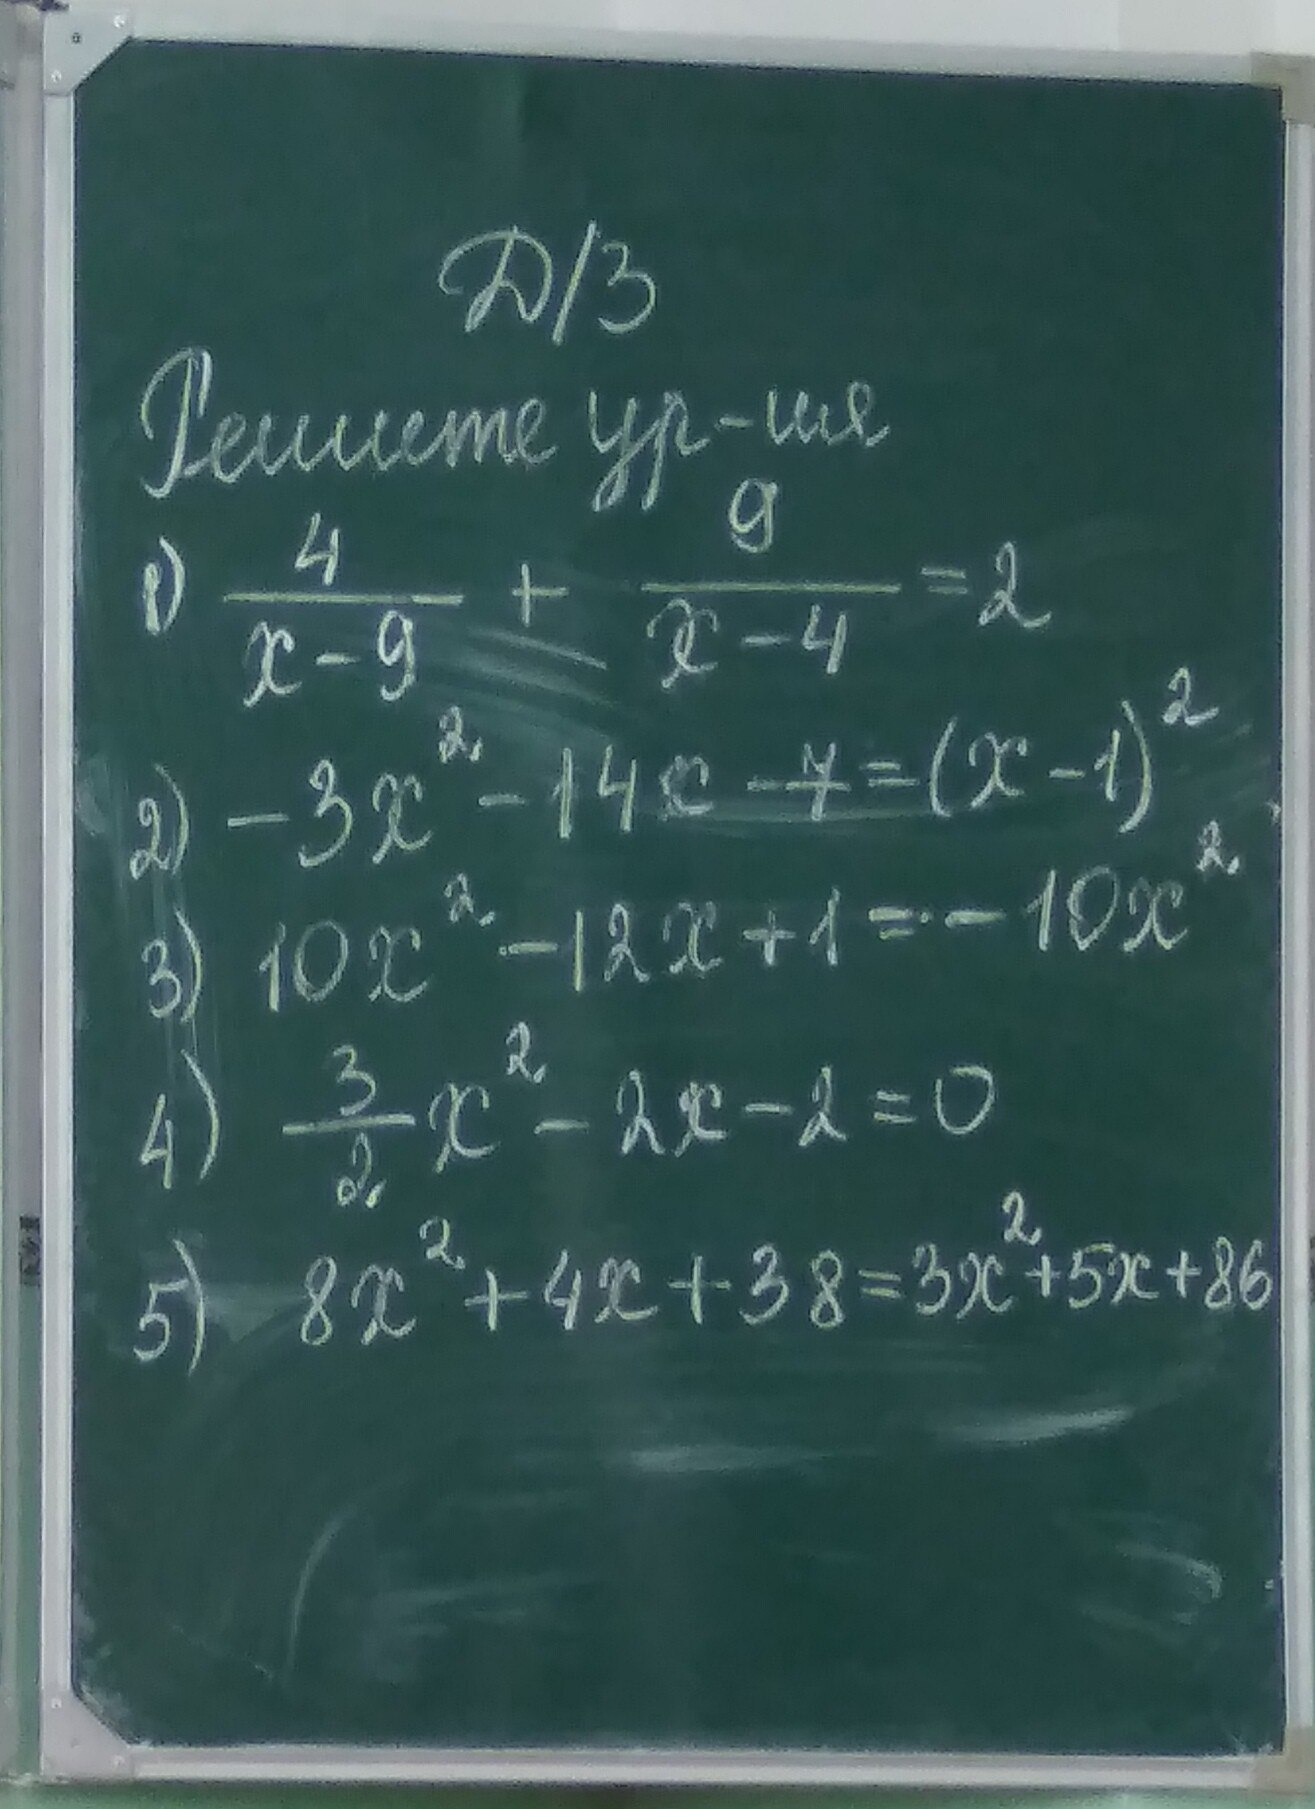 Д/З
Решите ур-ия
1) 4/(x-9) + 9/(x-4) = 2
2) -3x² - 14x - 7 = (x-1)²
3) 10x² - 12x + 1 = -10x²
4) 3/2 x² - 2x - 2 = 0
5) 8x² + 4x + 38 = 3x² + 5x + 86